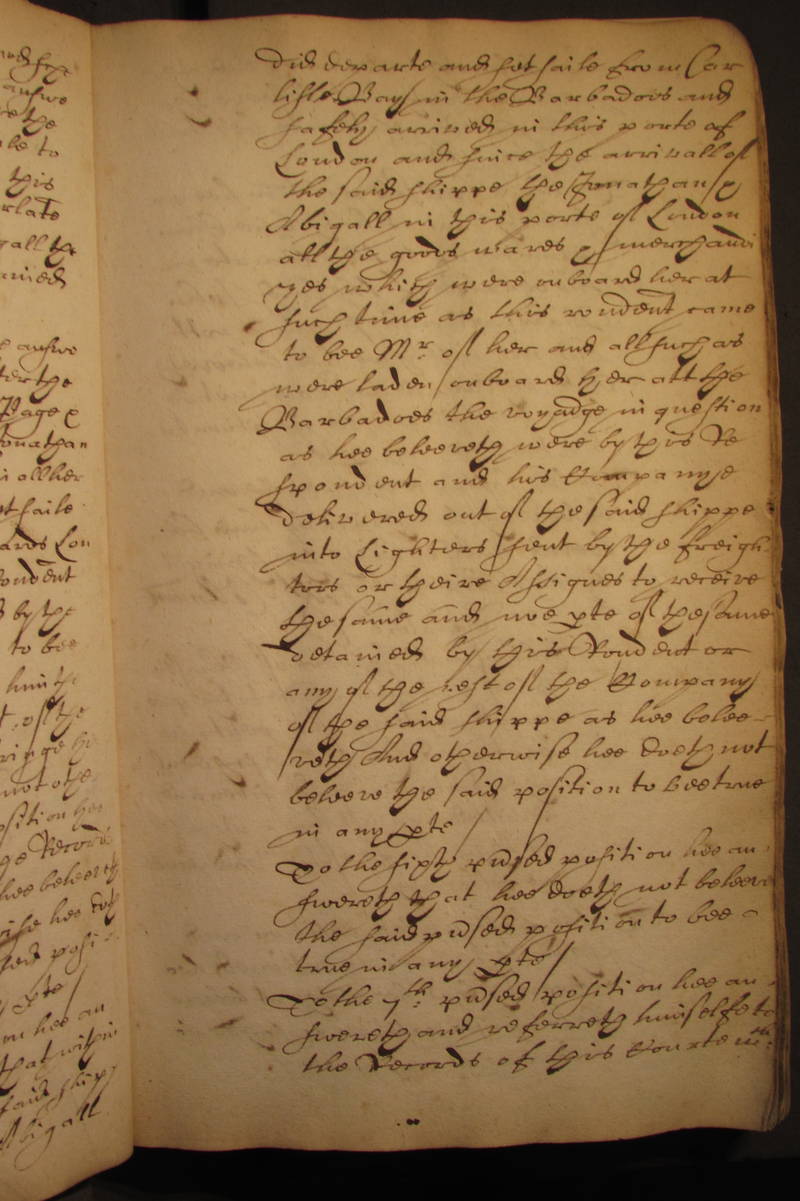 did departe and set saile from Car
lisle Bay in the Barbadoes and
safely arrived in this porte of
London and since the arrivall of
the said shippe the Jonathan &
Abigall in this porte of London
all the goods wares & merchandi
zes which were onboard her at
such time as this rondent came
to bee Mr: of her and all such as
were laden onboard her att the
Barbadoes the voyadge in question
as hee beleeveth were by this Re
spondent and his Companye
delivered out of the said shippe
into Lighters sent by the freigh
tors or theire Assignes to receive
the same and noe pte of the same
detained by this Rondent or
any of the rest of the Company
of the said shippe as hee belee
veth And otherwise hee doeth not
beleeve the said position to bee true
in any pte /
To the sixth position hee an
swereth that hee doeth not beleeve
the said position to bee
true in any pte /
To the 7th: position hee an
swereth and referreth himselfe to
the Records of this Courte
ans
to
this
gall th
ained
answ
ter the
Page &
Jonathan
all her
et saile
ards Lon
ondent
by the
to bee
him th
of the
not othe
osition hee
hee beleeveth
hee doth
posi
pte /
hee an
that within
said shipp
Abigall